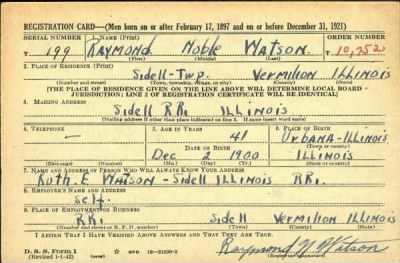 REGISTRATION CARD—(Men born on or after February 17, 1897 and on or before December 31, 1921)
SERIAL NUMBER 1. NAME (Print) ORDER NUMBER
199 RAYMOND Noble WATSON 10,752
(First) (Middle) (Last)
2. PLACE OF RESIDENCE (Print)
Sidell-Twp. Vermilion ILLINOIS
(Number and street) (Town, township, village, or city) (County) (State)
[THE PLACE OF RESIDENCE GIVEN ON THE LINE ABOVE WILL DETERMINE LOCAL BOARD
JURISDICTION; LINE 2 OF REGISTRATION CERTIFICATE WILL BE IDENTICAL]
3. MAILING ADDRESS
Sidell RR1 ILLINOIS
(Mailing address if other than place indicated on line 2. If same insert word same)
4. TELEPHONE 5. AGE IN YEARS 6. PLACE OF BIRTH
— 41 URBANA-ILLINOIS
DATE OF BIRTH (Town or county)
Dec 2 1900 ILLINOIS
(Exchange) (Number) (Mo.) (Day) (Yr.) (State or country)
7. NAME AND ADDRESS OF PERSON WHO WILL ALWAYS KNOW YOUR ADDRESS
Ruth. E. WATSON - Sidell ILLINOIS RR1.
8. EMPLOYER'S NAME AND ADDRESS
Self.
9. PLACE OF EMPLOYMENT OR BUSINESS
RR1 Sidell Vermilion ILLINOIS
(Number and street or R. F. D. number) (Town) (County) (State)
I AFFIRM THAT I HAVE VERIFIED ABOVE ANSWERS AND THAT THEY ARE TRUE.
D. S. S. Form 1
(Revised 1-1-42) (over) Raymond N Watson